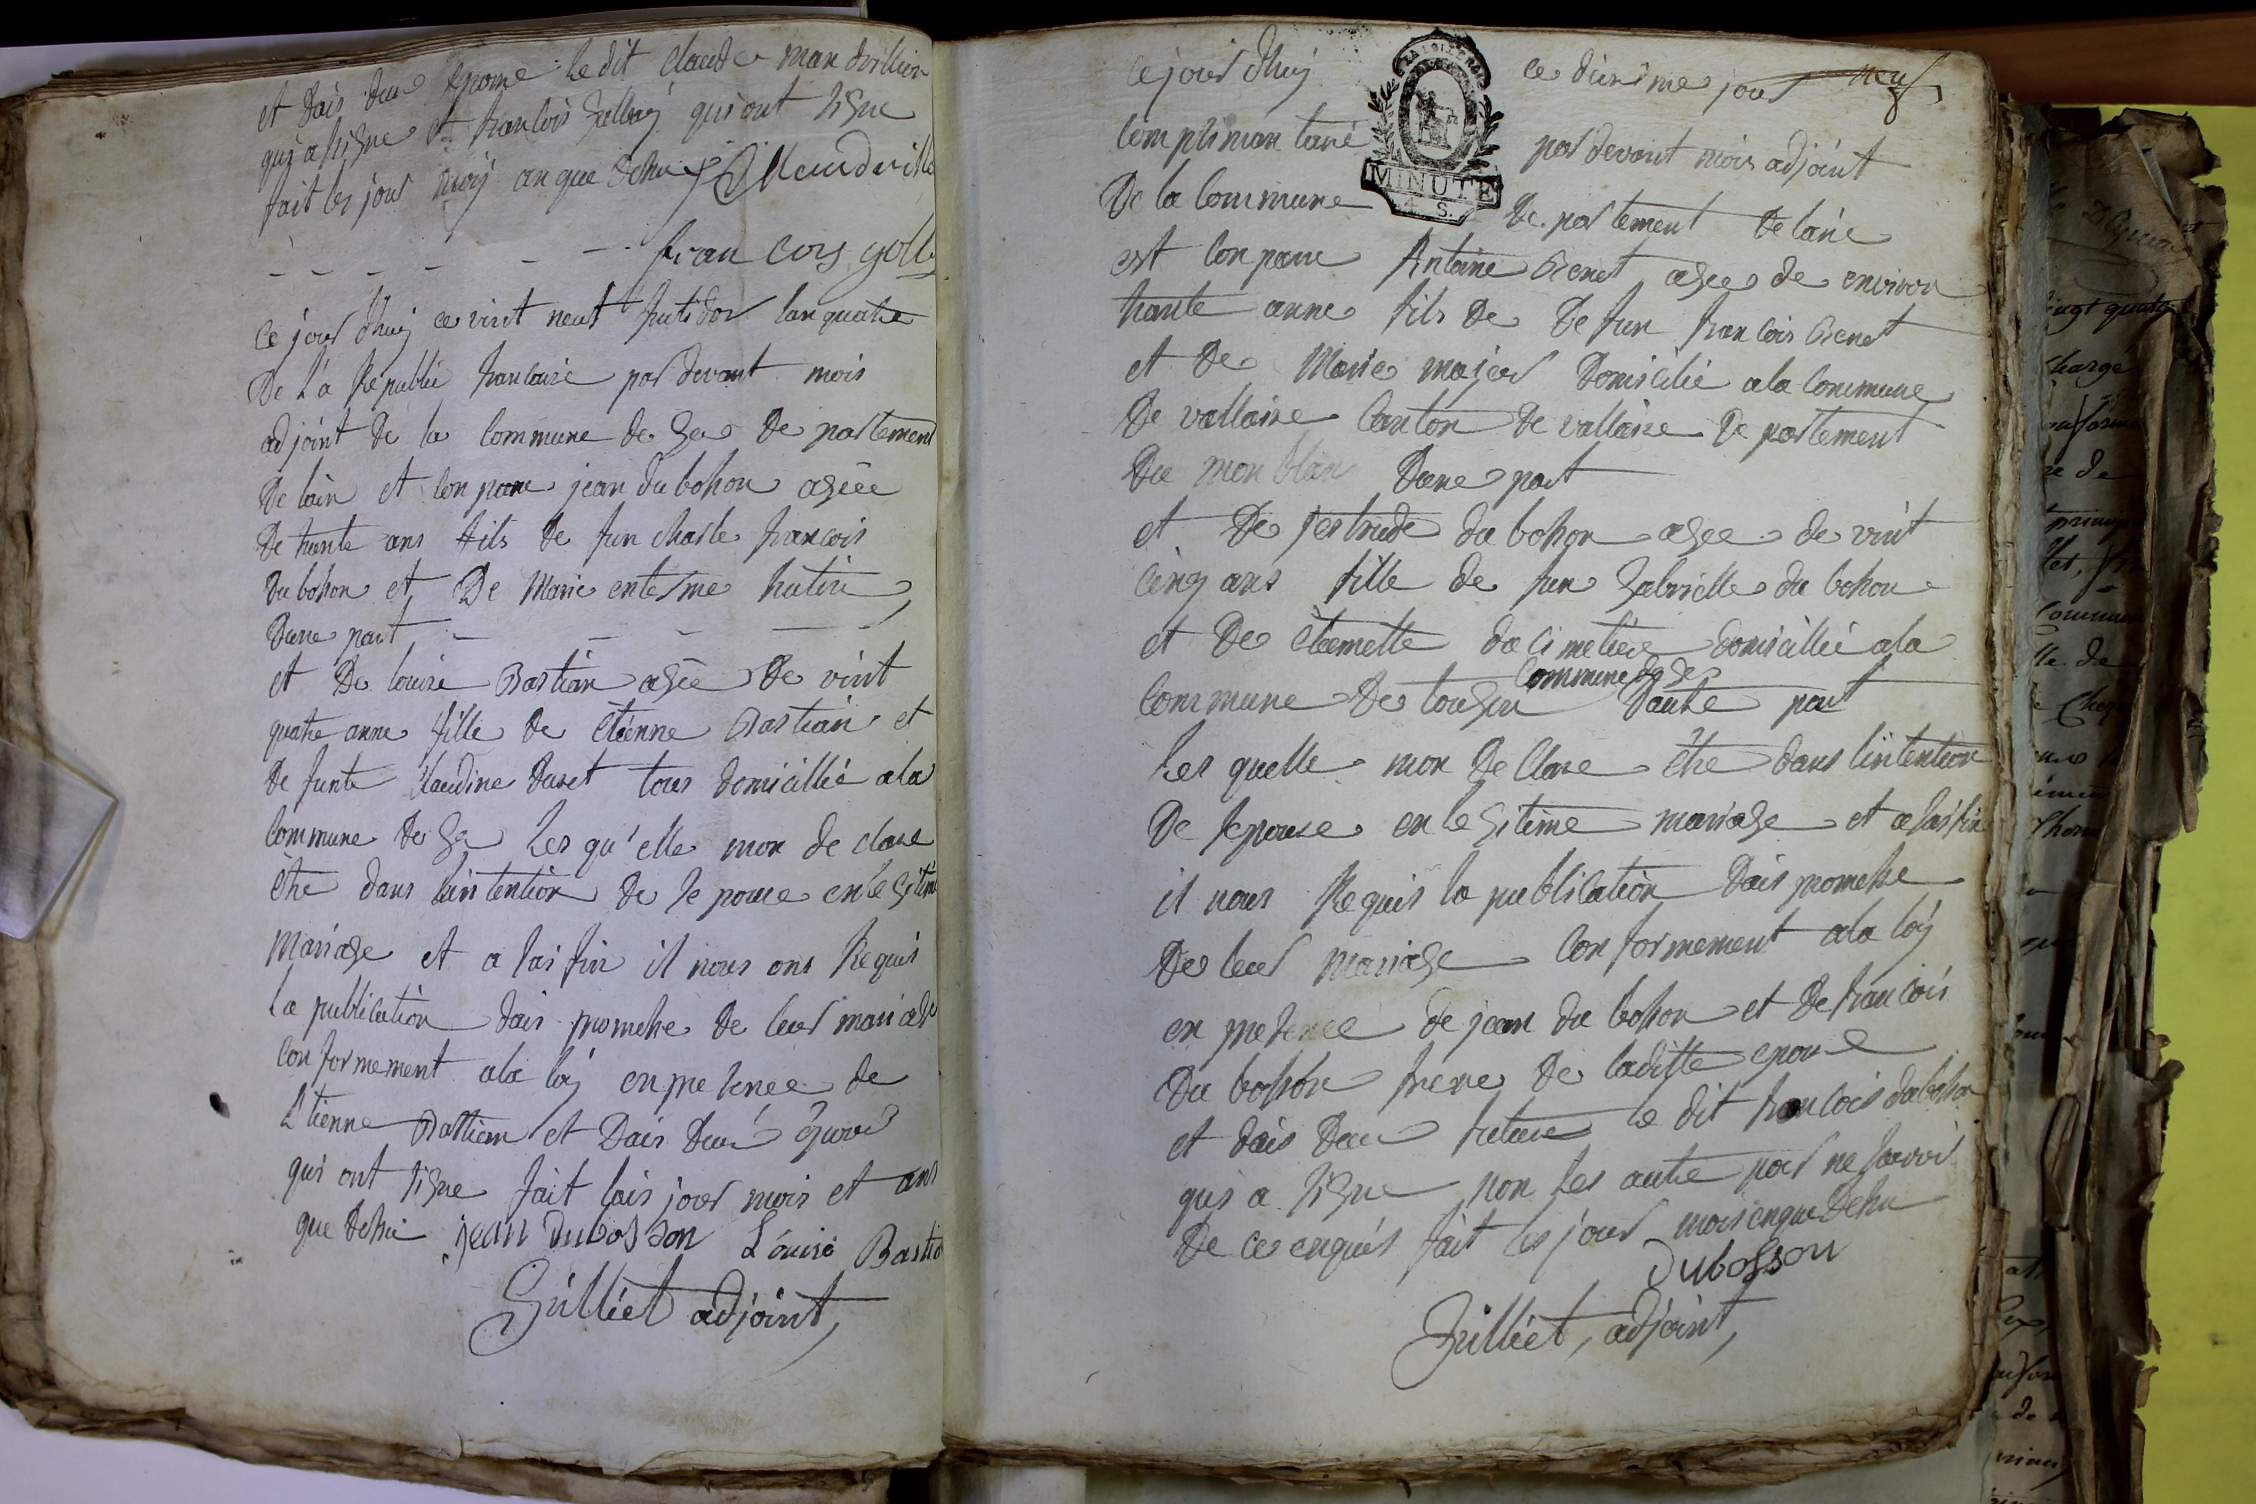 et dais deu Epouse le dit claude mandrillion
quj a signe et francois Gallay qui ont signe
fait les jour moy an que dehu C Mandrillo
francois goll
ce jour dhuy ce vint neut frutidor lan quatre
De la Republic francaise par devant mois
adjoint De la commune de Gex De partement
De lain et conparu jean du boson agée
De trante ans fils de fun charle francois
du boson et De Marie
Dune part
et De louise Bastian agée De vint
quatre anne fille de étienne Bastian et
de funte Claudine Duret tous domicillié a la
commune de Gex les qu'elle mon de clare
être dans lintention de se pouse en le Gitime
Mariage et a sais fin il nous ons Requis
la publication dais promesse de leur mariage
conformement a la loy en presence de
Etienne Bastian et Dais deux épouse
qui ont signe fait lais jour mois et ans
que dehu jean Dubosson Louise Bastia
Gilliet adjoint
ce jour dhuy ce dixsime jour neuf
complimantaire par devant mois adjoint
MINUTE
De la commune De partement De lain
est conparu Antoine Benet agée de environ
trante anne fils De De fun francois Benet
et De Marie major Domicilié a la commune
De vallaire Canton De vallaire De partement
Du mon blan Dune part
et De jertrude du boson agee de vint
cinq ans fille de fun Gabrielle du boson
et De étiennette du cimetiere domicillié a la
commune De Gex
commune De tougin Dautre part
Les quelle mon De Clare être dans lintention
De Sepouse en le Gitime mariage et a sais fin
il nous Requis la publication Dais promesse
De leur mariage conformement a la loy
en presence de jean du boson et De francois
Du boson frere De laditte epouse
et dais deu future le dit francois duboson
qui a signe non les autre par ne savoir
De ce enquis fait les jour mois en que Dehu
Dubosson
Gilliet, adjoint